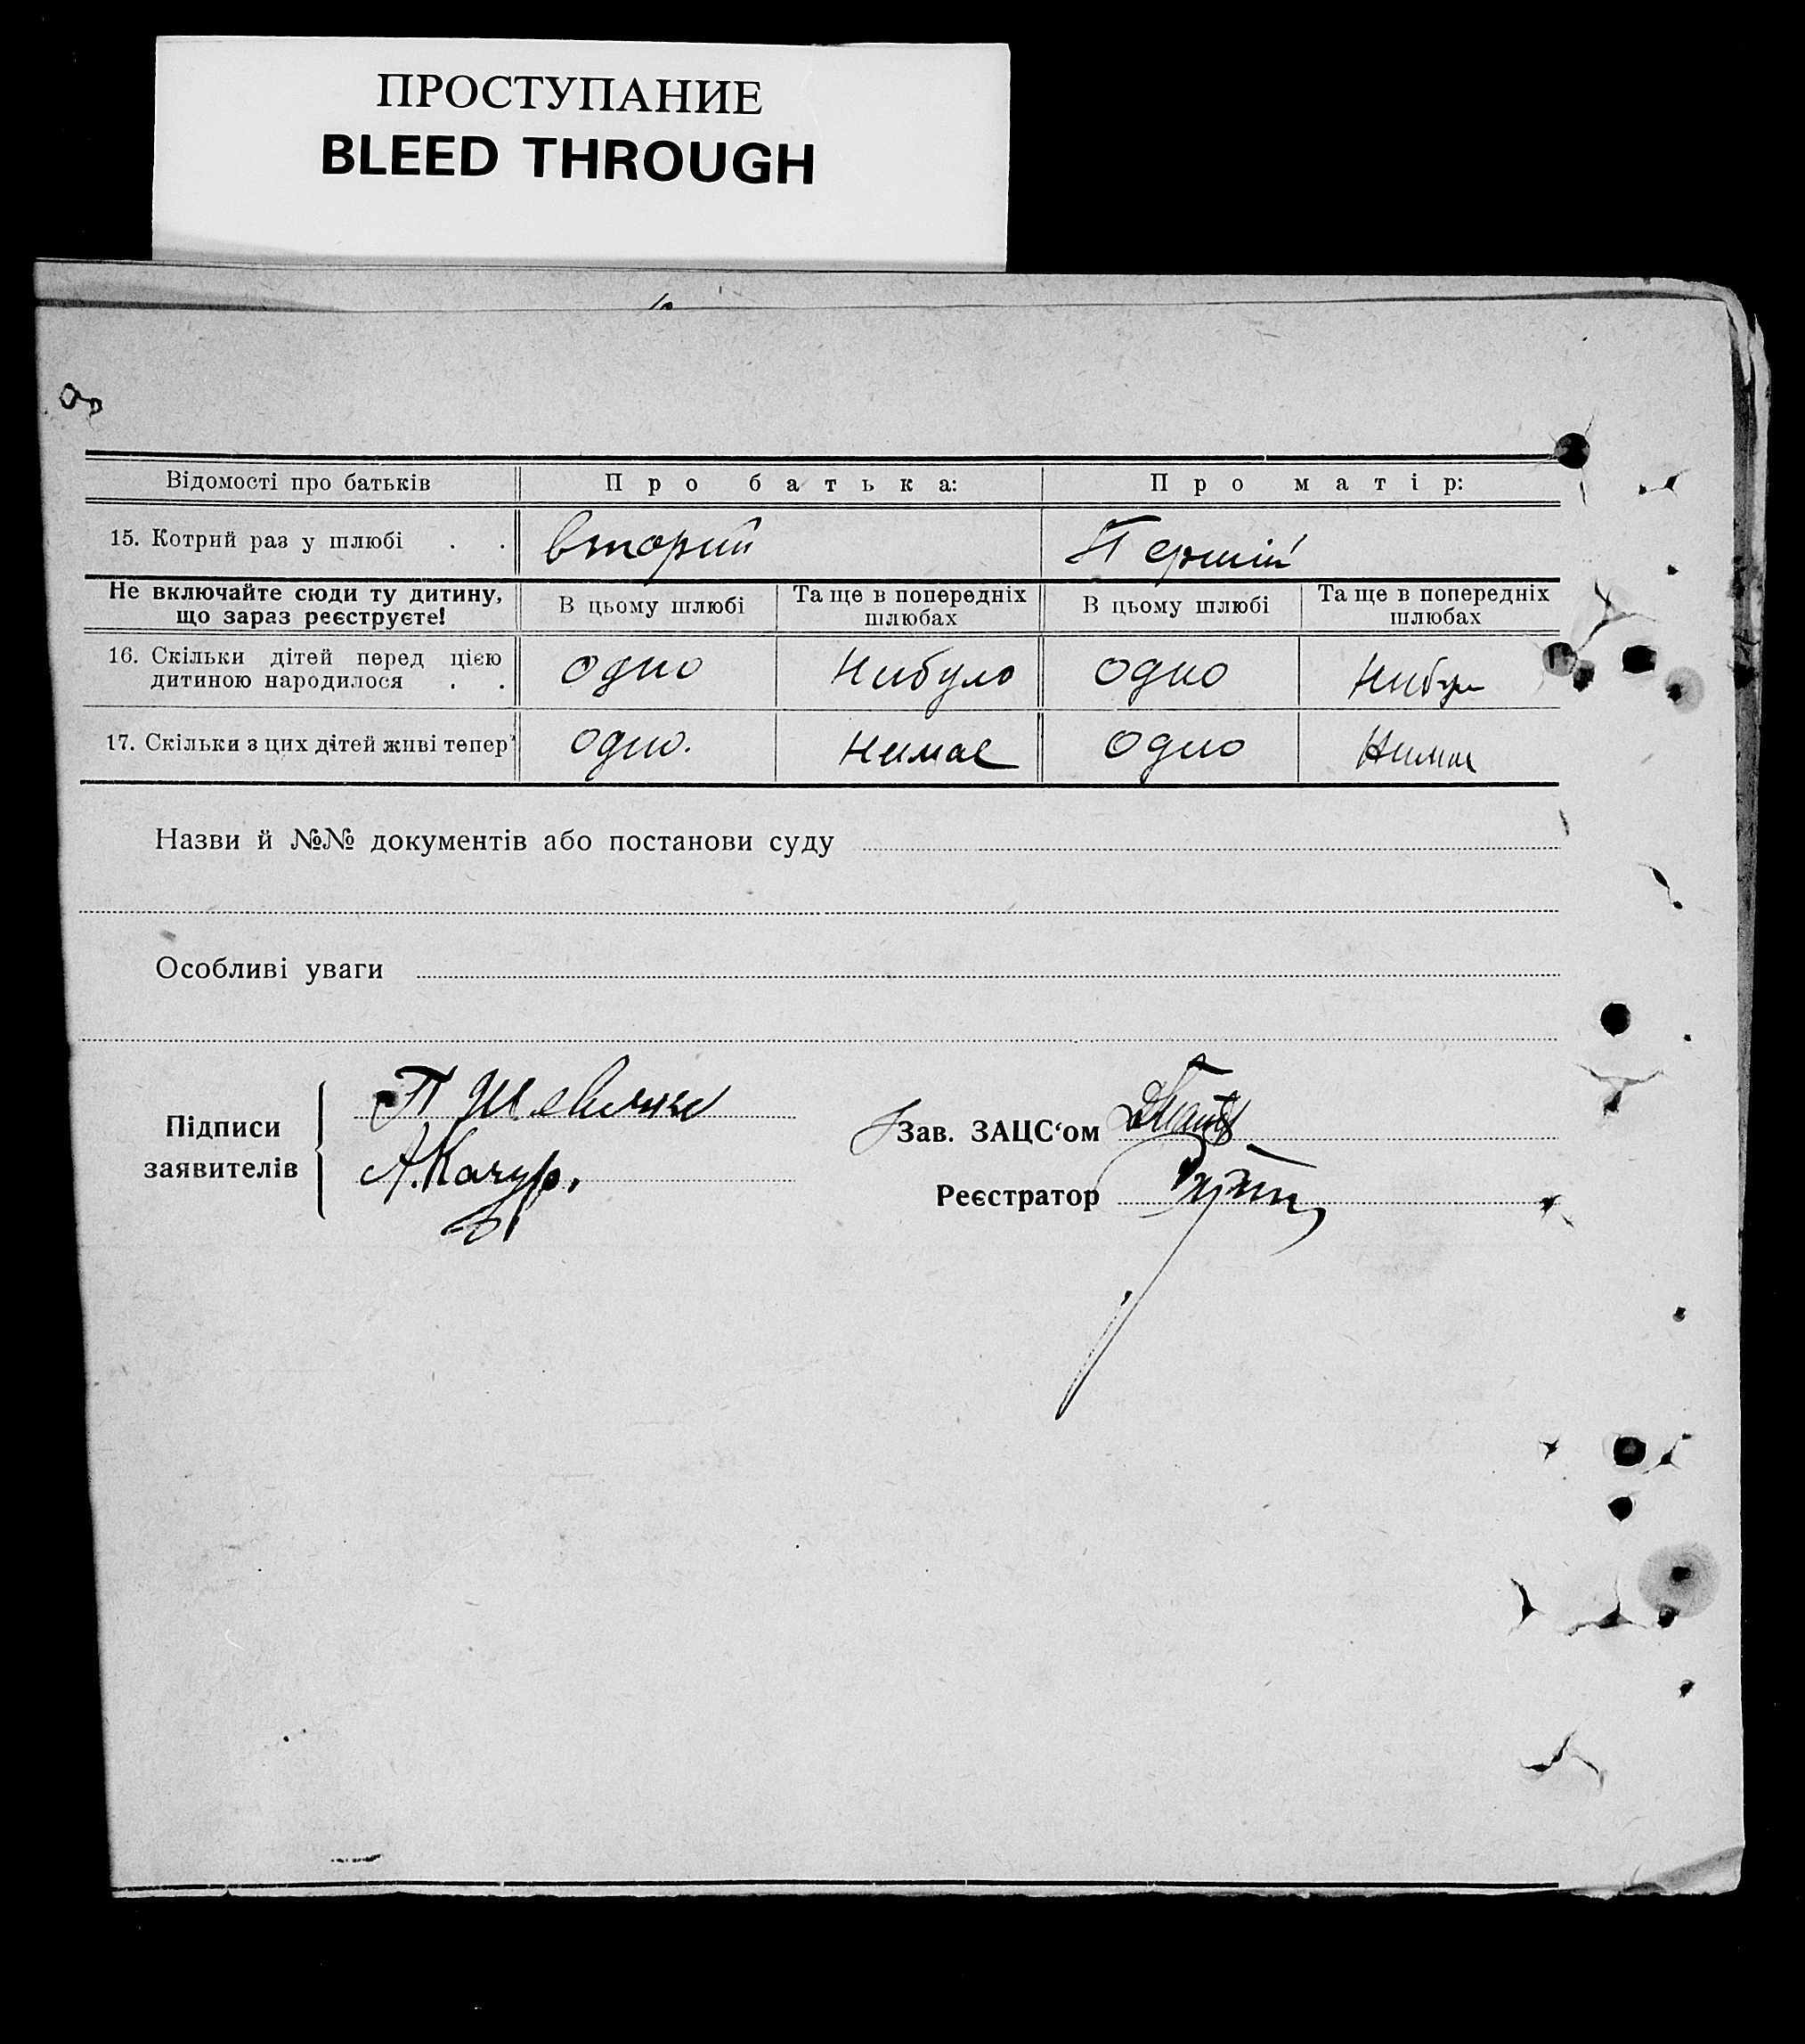 ПРОСТУПАНИЕ
BLEED THROUGH
Відомості про батьків Про батька: Про матір:
15. Котрий раз у шлюбі . . вторий Першій
Не включайте сюди ту дитину, що зараз реєструєте! В цьому шлюбі Та ще в попередніх шлюбах В цьому шлюбі Та ще в попередніх шлюбах
16. Скільки дітей перед цією дитиною народилося . . одно Нибуло одно Нибул
17. Скільки з цих дітей живі тепер одно. Нимає Одно Нимає
Назви й №№ документів або постанови суду
Особливі уваги
Підписи заявителів
П
А. Качур.
Зав. ЗАЦС‘ом
Реєстратор